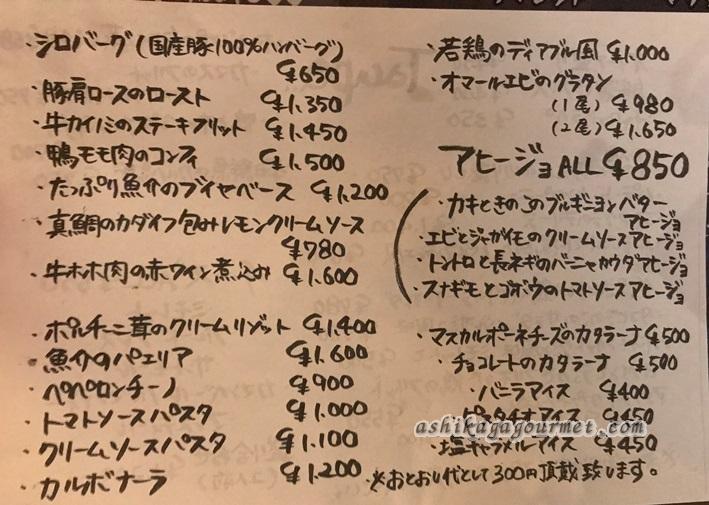 ・シロバーグ(国産豚100%ハンバーグ)
¥650
・豚肩ロースのロースト ¥1,350
・牛カイノミのステーキフリット ¥1,450
・鴨モモ肉のコンフィ ¥1,500
・たっぷり魚介のブイヤベース ¥1,200
・真鯛のカダイフ包みレモンクリームソース
¥780
・牛ホホ肉の赤ワイン煮込み ¥1,600
・ポルチーニ茸のクリームリゾット ¥1,400
・魚介のパエリア ¥1,600
・ペペロンチーノ ¥900
・トマトソースパスタ ¥1,000
・クリームソースパスタ ¥1,100
・カルボナーラ ¥1,200
・若鶏のディアブル風 ¥1,000
・オマールエビのグラタン
(1尾) ¥980
(2尾) ¥1,650
アヒージョALL ¥850
・カキときのこのブルギニヨンバター
アヒージョ
・エビとジャガイモのクリームソースアヒージョ
・トントロと長ネギのバーニャカウダアヒージョ
・スナギモとゴボウのトマトソースアヒージョ
・マスカルポーネチーズのカタラーナ ¥500
・チョコレートのカタラーナ ¥500
・バニラアイス ¥400
・ピスタチオアイス ¥450
ashikagagourmet.com
・塩キャラメルアイス ¥450
※おとおし代として300円頂戴致します。